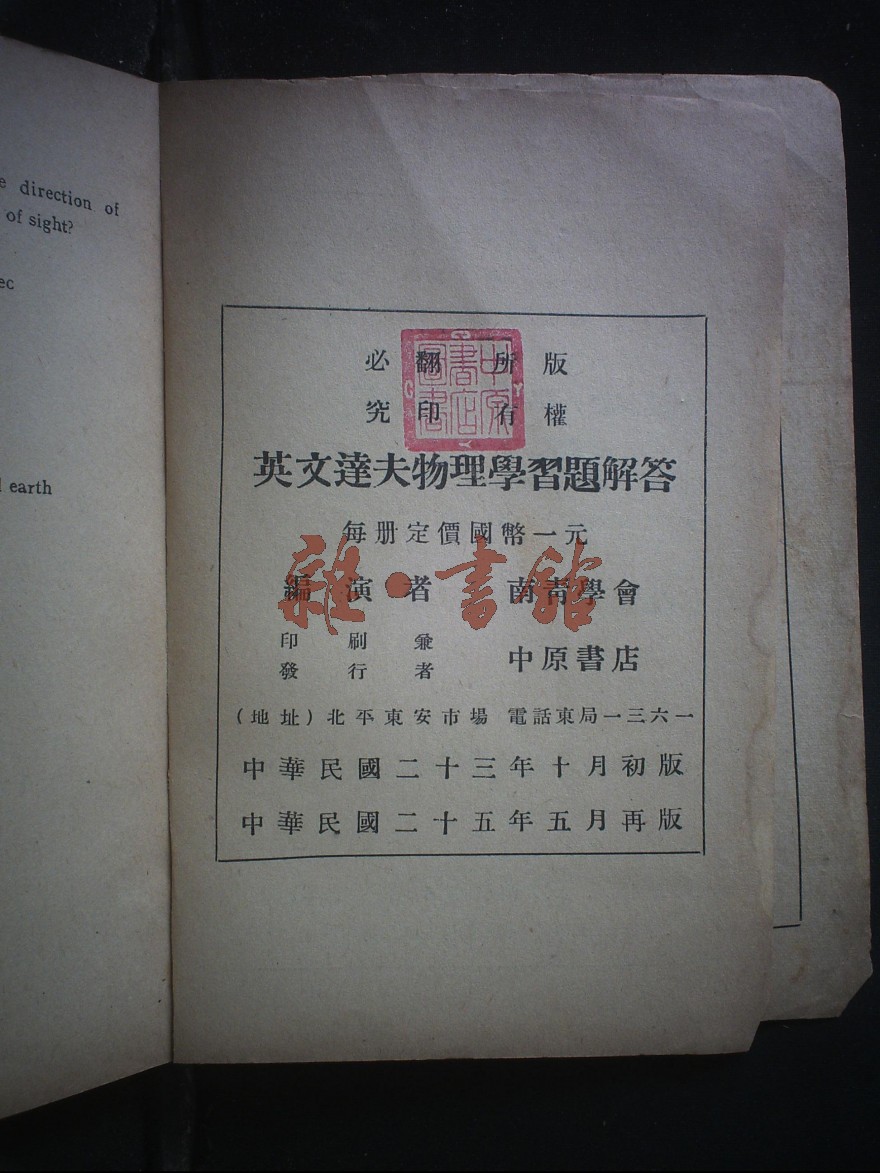 e direction of
of sight?
ec
earth
必翻所版
究印有權
中原書店圖書
英文達夫物理學習題解答
每册定價國幣一元
編演者 南青學會
雜·書館
印刷兼
發行者 中原書店
(地址)北平東安市場 電話東局一三六一
中華民國二十三年十月初版
中華民國二十五年五月再版